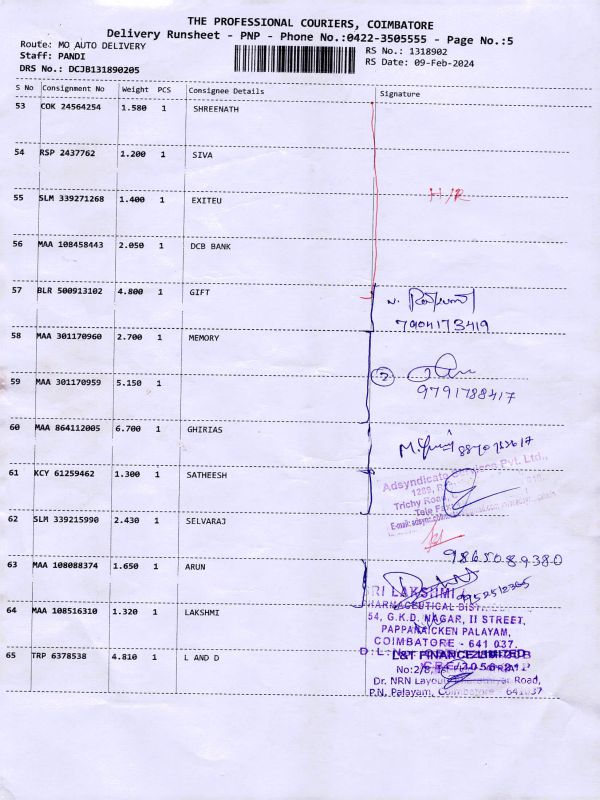 THE PROFESSIONAL COURIERS, COIMBATORE
Delivery Runsheet - PNP - Phone No.:0422-3505555 - Page No.:5
Route: MO AUTO DELIVERY RS No.: 1318902
Staff: PANDI RS Date: 09-Feb-2024
DRS No.: DCJB131890205
S No Consignment No Weight PCS Consignee Details Signature
53 COK 24564254 1.580 1 SHREENATH
54 RSP 2437762 1.200 1 SIVA
55 SLM 339271268 1.400 1 EXITEU H/R
56 MAA 108458443 2.050 1 DCB BANK
57 BLR 500913102 4.800 1 GIFT
7904173419
58 MAA 301170960 2.700 1 MEMORY
59 MAA 301170959 5.150 1 2
9791788417
60 MAA 864112005 6.700 1 GHIRIAS
61 KCY 61259462 1.300 1 SATHEESH
Adsyndicate Services Pvt. Ltd.,
Trichy Road,
62 SLM 339215990 2.430 1 SELVARAJ
9865089380
63 MAA 108088374 1.650 1 ARUN
9952512365
SRI LAKSHMI
PHARMACEUTICAL DIST.
64 MAA 108516310 1.320 1 LAKSHMI
54, G.K.D. NAGAR, II STREET,
PAPPANAICKEN PALAYAM,
COIMBATORE - 641 037.
65 TRP 6378538 4.810 1 L AND D
L&T FINANCE LIMITED
Dr. NRN Layout, Bharathiyar Road,
P.N. Palayam, Coimbatore - 641037